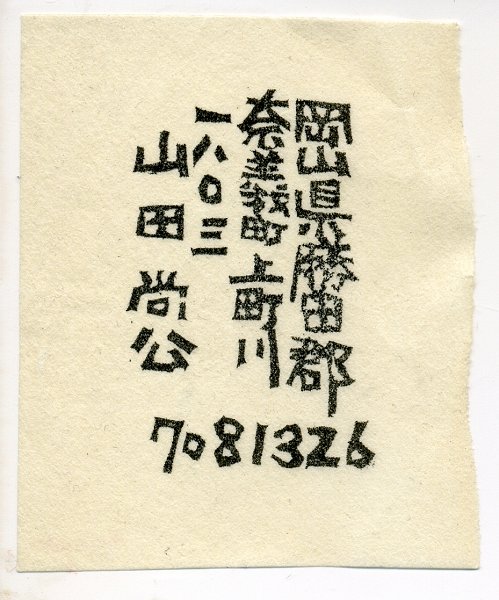 岡山県勝田郡
奈義町上町川
一八〇三
山田尚公
7081326